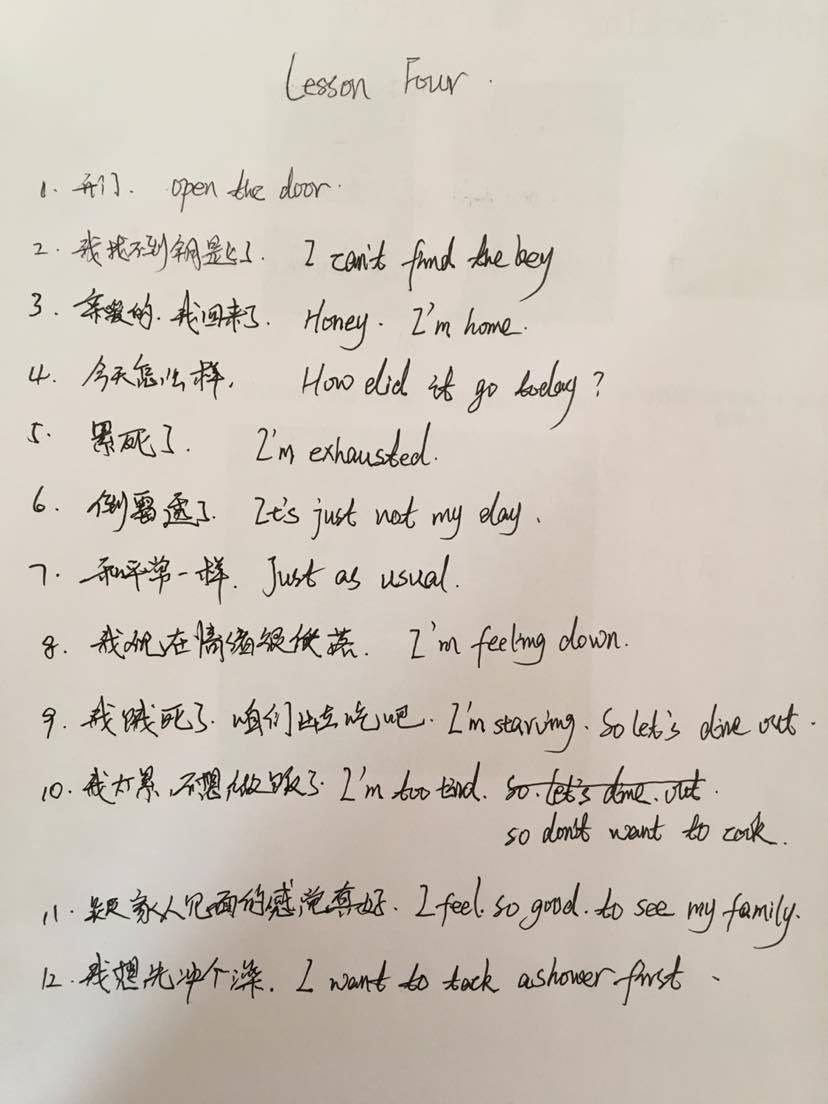 Lesson Four.
1. 开门. open the door.
2. 我找不到钥匙了. I can't find the key
3. 亲爱的. 我回来了. Honey. I'm home.
4. 今天怎么样, How did it go today?
5. 累死了. I'm exhausted.
6. 倒霉透了. It's just not my day.
7. 和平常一样. Just as usual.
8. 我现在情绪很低落. I'm feeling down.
9. 我饿死了. 咱们出去吃吧. I'm starving. So let's dine out.
10. 我太累, 不想做饭了. I'm too tired. so. let's dine. out.
so don't want to cook.
11. 跟家人见面的感觉真好. I feel. so good. to see my family.
12. 我想先冲个澡. I want to tack a shower first.